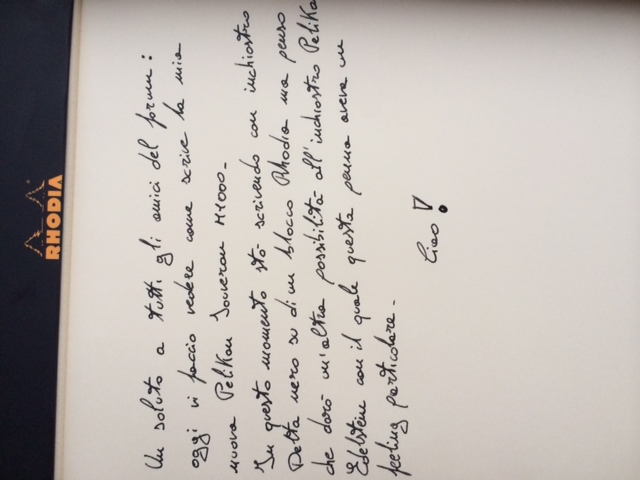 RHODIA
Un saluto a tutti gli amici del forum:
oggi vi faccio vedere come scrive la mia
nuova Pelikan Souveran M1000-
In questo momento sto scrivendo con inchiostro
Delta nero su di un blocco Rhodia ma penso
che darò un'altra possibilità all'inchiostro Pelika
Edelstein con il quale questa penna aveva un
feeling particolare-
Ciao!